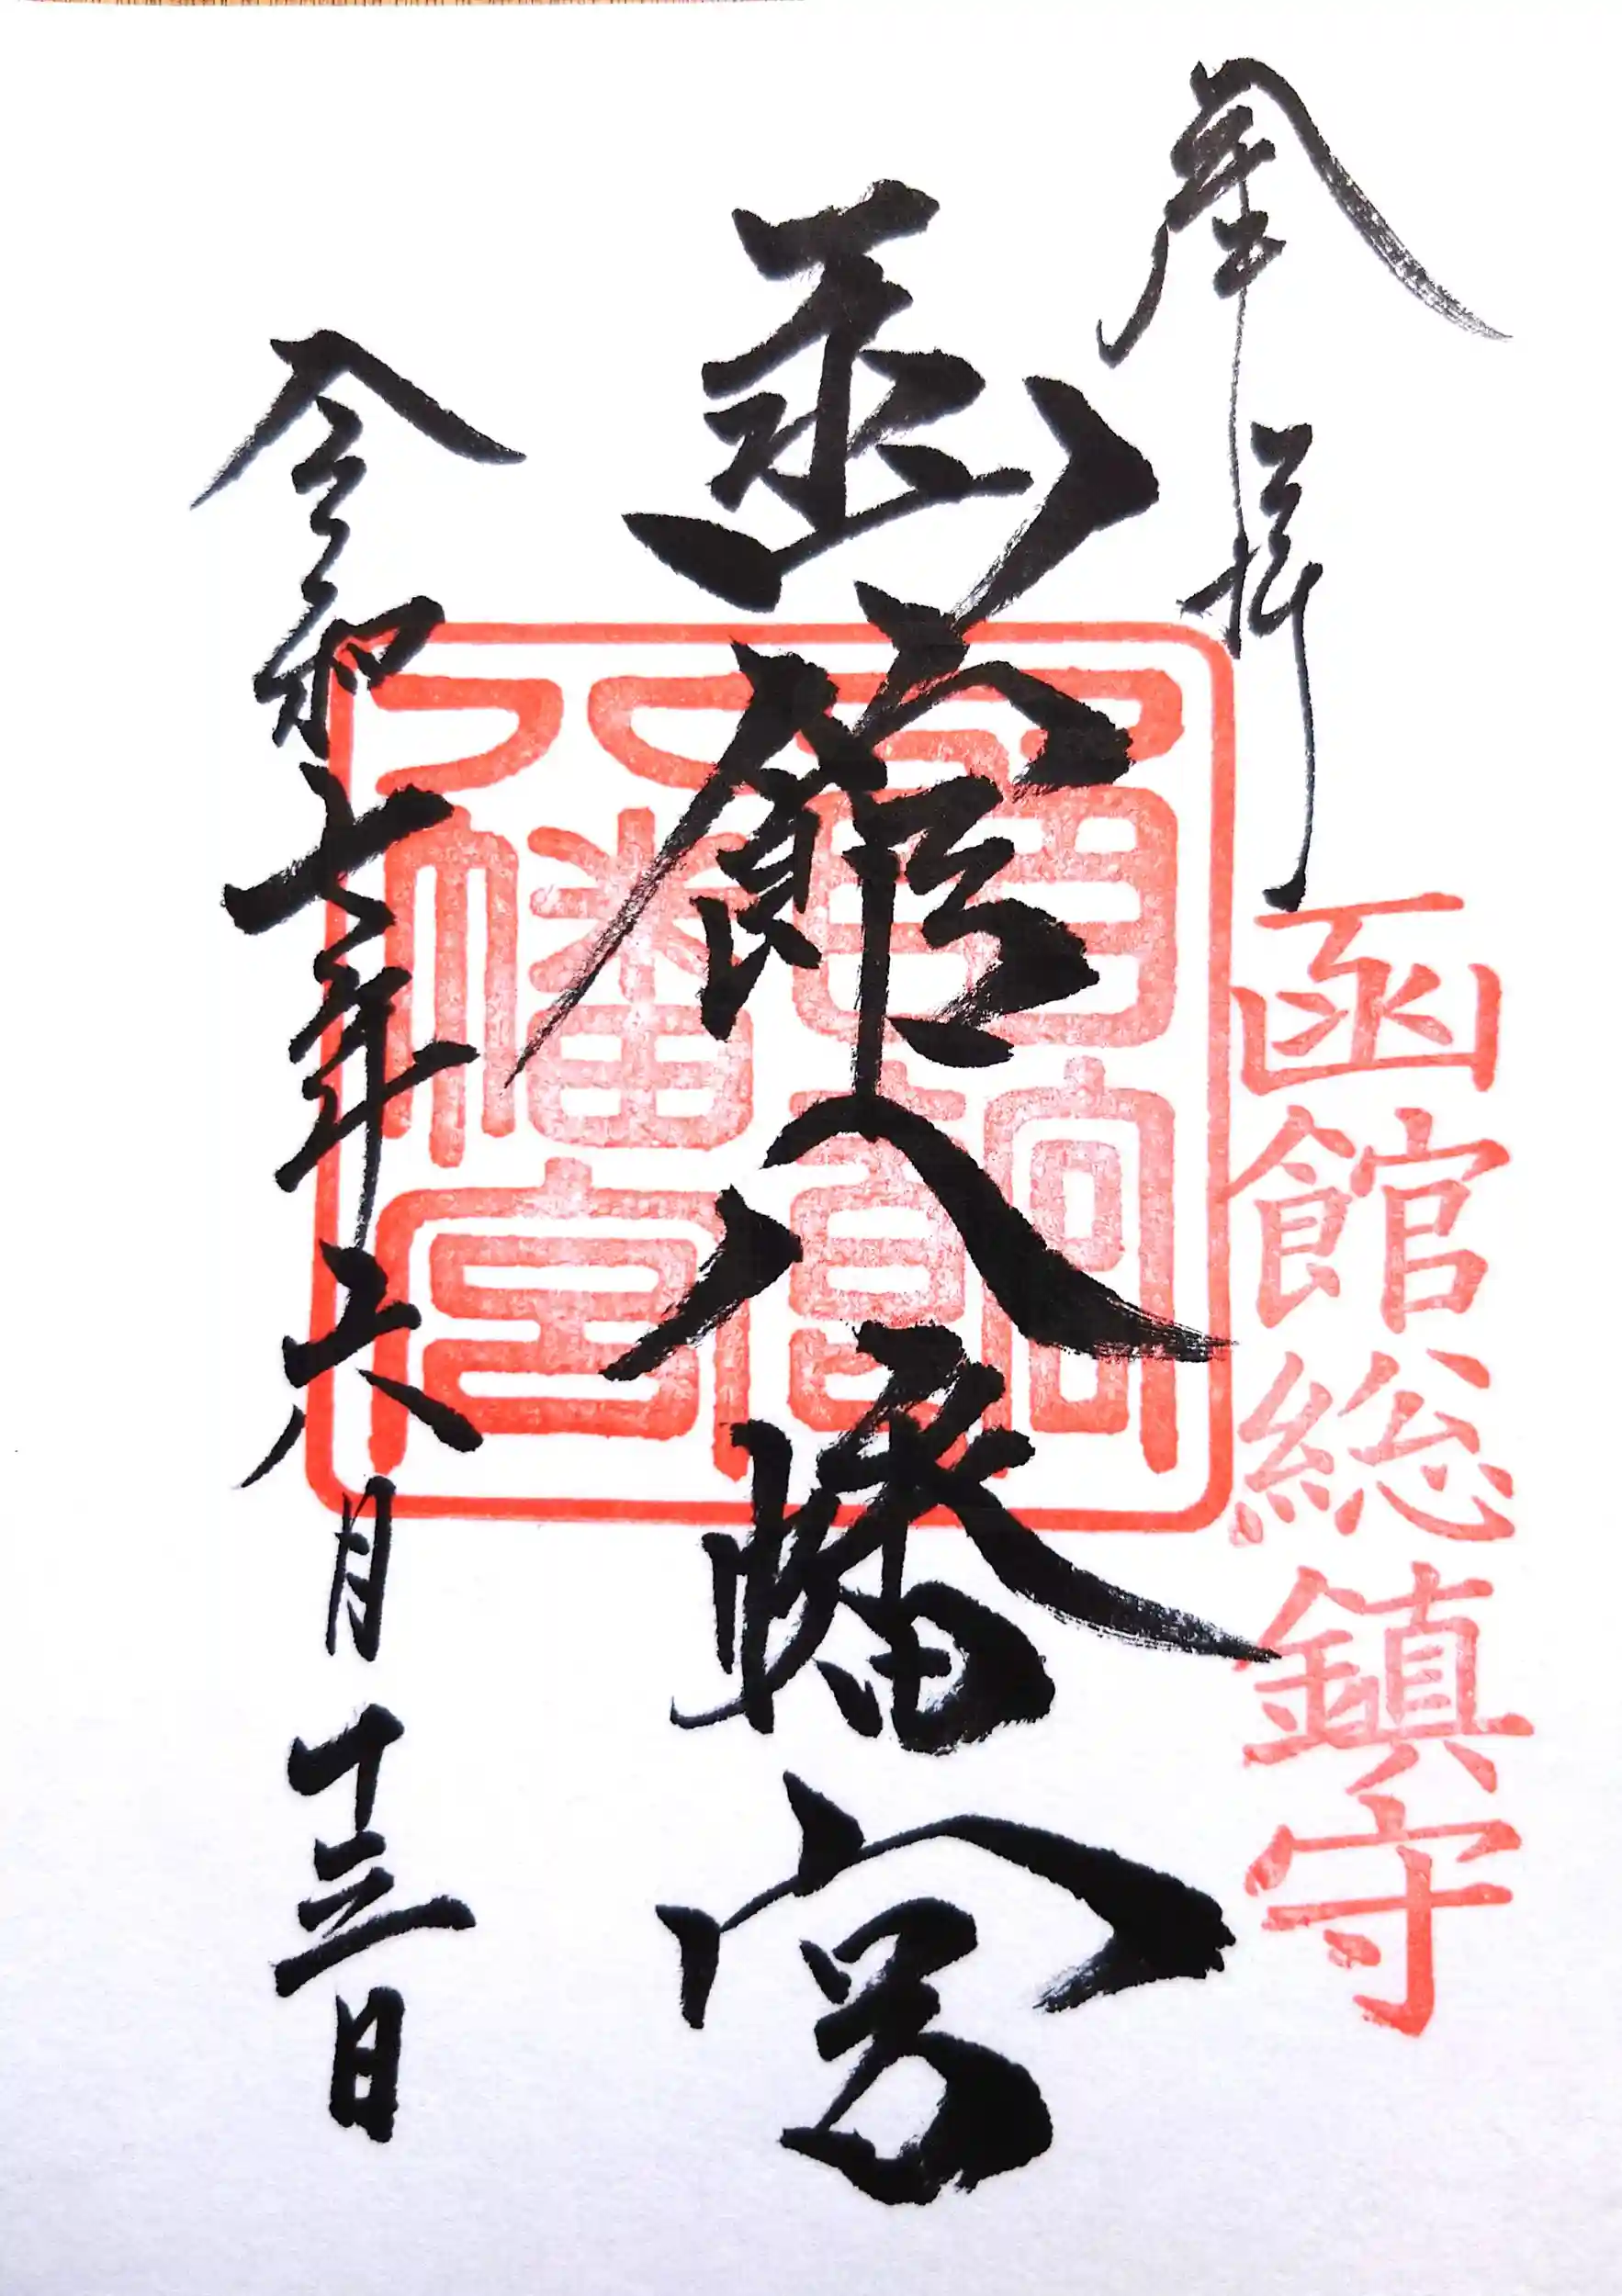 奉拝
函館総鎮守
函館八幡宮
八幡宮
令和七年六月十三日